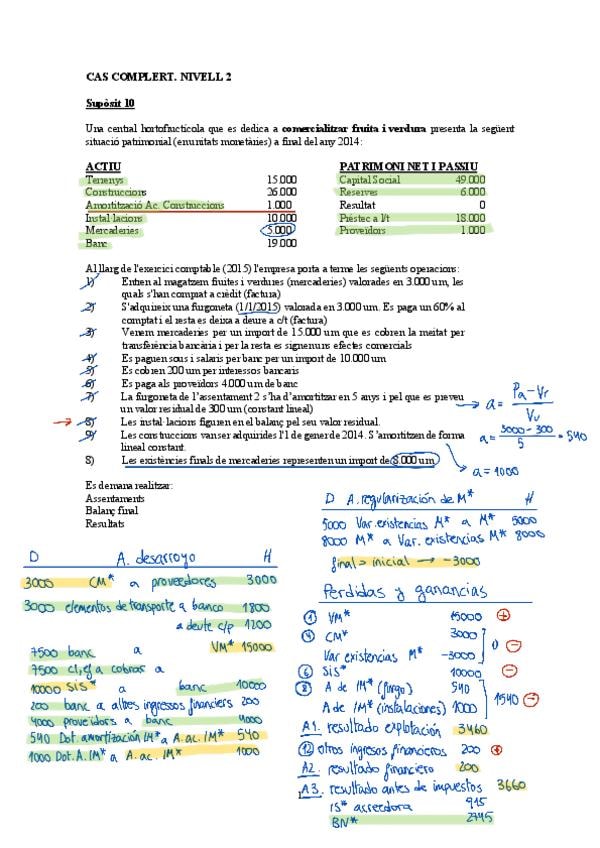 CAS COMPLERT. NIVELL 2
Supòsit 10
Una central hortofructícola que es dedica a comercialitzar fruita i verdura presenta la següent
situació patrimonial (en unitats monetàries) a final del any 2014:
ACTIU PATRIMONI NET I PASSIU
Terrenys 15.000 Capital Social 49.000
Construccions 26.000 Reserves 6.000
Amortització Ac. Construccions 1.000 Resultat 0
Instal·lacions 10.000 Préstec a l/t 18.000
Mercaderies 5.000 Proveïdors 1.000
Banc 19.000
Al llarg de l'exercici comptable (2015) l'empresa porta a terme les següents operacions:
1) Entren al magatzem fruites i verdures (mercaderies) valorades en 3.000 um, les
quals s'han comprat a crèdit (factura)
2) S'adquireix una furgoneta (1/1/2015) valorada en 3.000 um. Es paga un 60% al
comptat i el resta es deixa a deure a c/t (factura)
3) Venem mercaderies per un import de 15.000 um que es cobren la meitat per
transferència bancària i per la resta es signen uns efectes comercials
4) Es paguen sous i salaris per banc per un import de 10.000 um
5) Es cobren 200 um per interessos bancaris
6) Es paga als proveïdors 4.000 um de banc
7) La furgoneta de l'assentament 2 s'ha d'amortitzar en 5 anys i pel que es preveu
un valor residual de 300 um (constant lineal)
a = Pa - Vr / Vu
8) Les instal·lacions figuren en el balanç pel seu valor residual.
9) Les construccions van ser adquirides l'1 de gener de 2014. S'amortitzen de forma
lineal constant.
a = 3000 - 300 / 5 = 540
a = 1000
8) Les existències finals de mercaderies representen un import de 8.000 um
Es demana realitzar:
Assentaments
Balanç final
Resultats
D A. regularización de M* H
5000 Var. existencias M* a M* 5000
8000 M* a Var. existencias M* 8000
final > inicial → -3000
D A. desarroyo H
3000 CM* a proveedores 3000
3000 elementos de transporte a banco 1800
a deute c/p 1200
7500 banc a VM* 15000
7500 cl, ef a cobrar a
10000 SiS* a banc 10000
200 banc a altres ingressos financiers 200
4000 proveidors a banc 4000
540 Dot. amortización IM* a A. ac. IM* 540
1000 Dot. A. IM* a A. ac. IM* 1000
Perdidas y ganancias
1 VM* 15000 +
4 CM* 3000
Var existencias M* -3000 0 -
6 SiS* 10000 -
8 A de IM* (furgo) 540
A de IM* (instalaciones) 1000 1540 -
A1. resultado explotación 3460
12 otros ingresos financieros 200 +
A2. resultado financiero 200
A3. resultado antes de impuestos 3660
IS* acreedora 915
BN* 2745